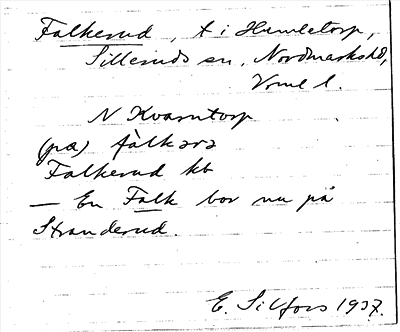 Falkerud, t i Humletorp,
Silleruds sn, Nordmarks hd,
Vrml l.
N Kvarntorp
(på) fàlkərə
Falkerud kb
— En Falk bor nu på
Stranderud.
E. Silfors 1937.